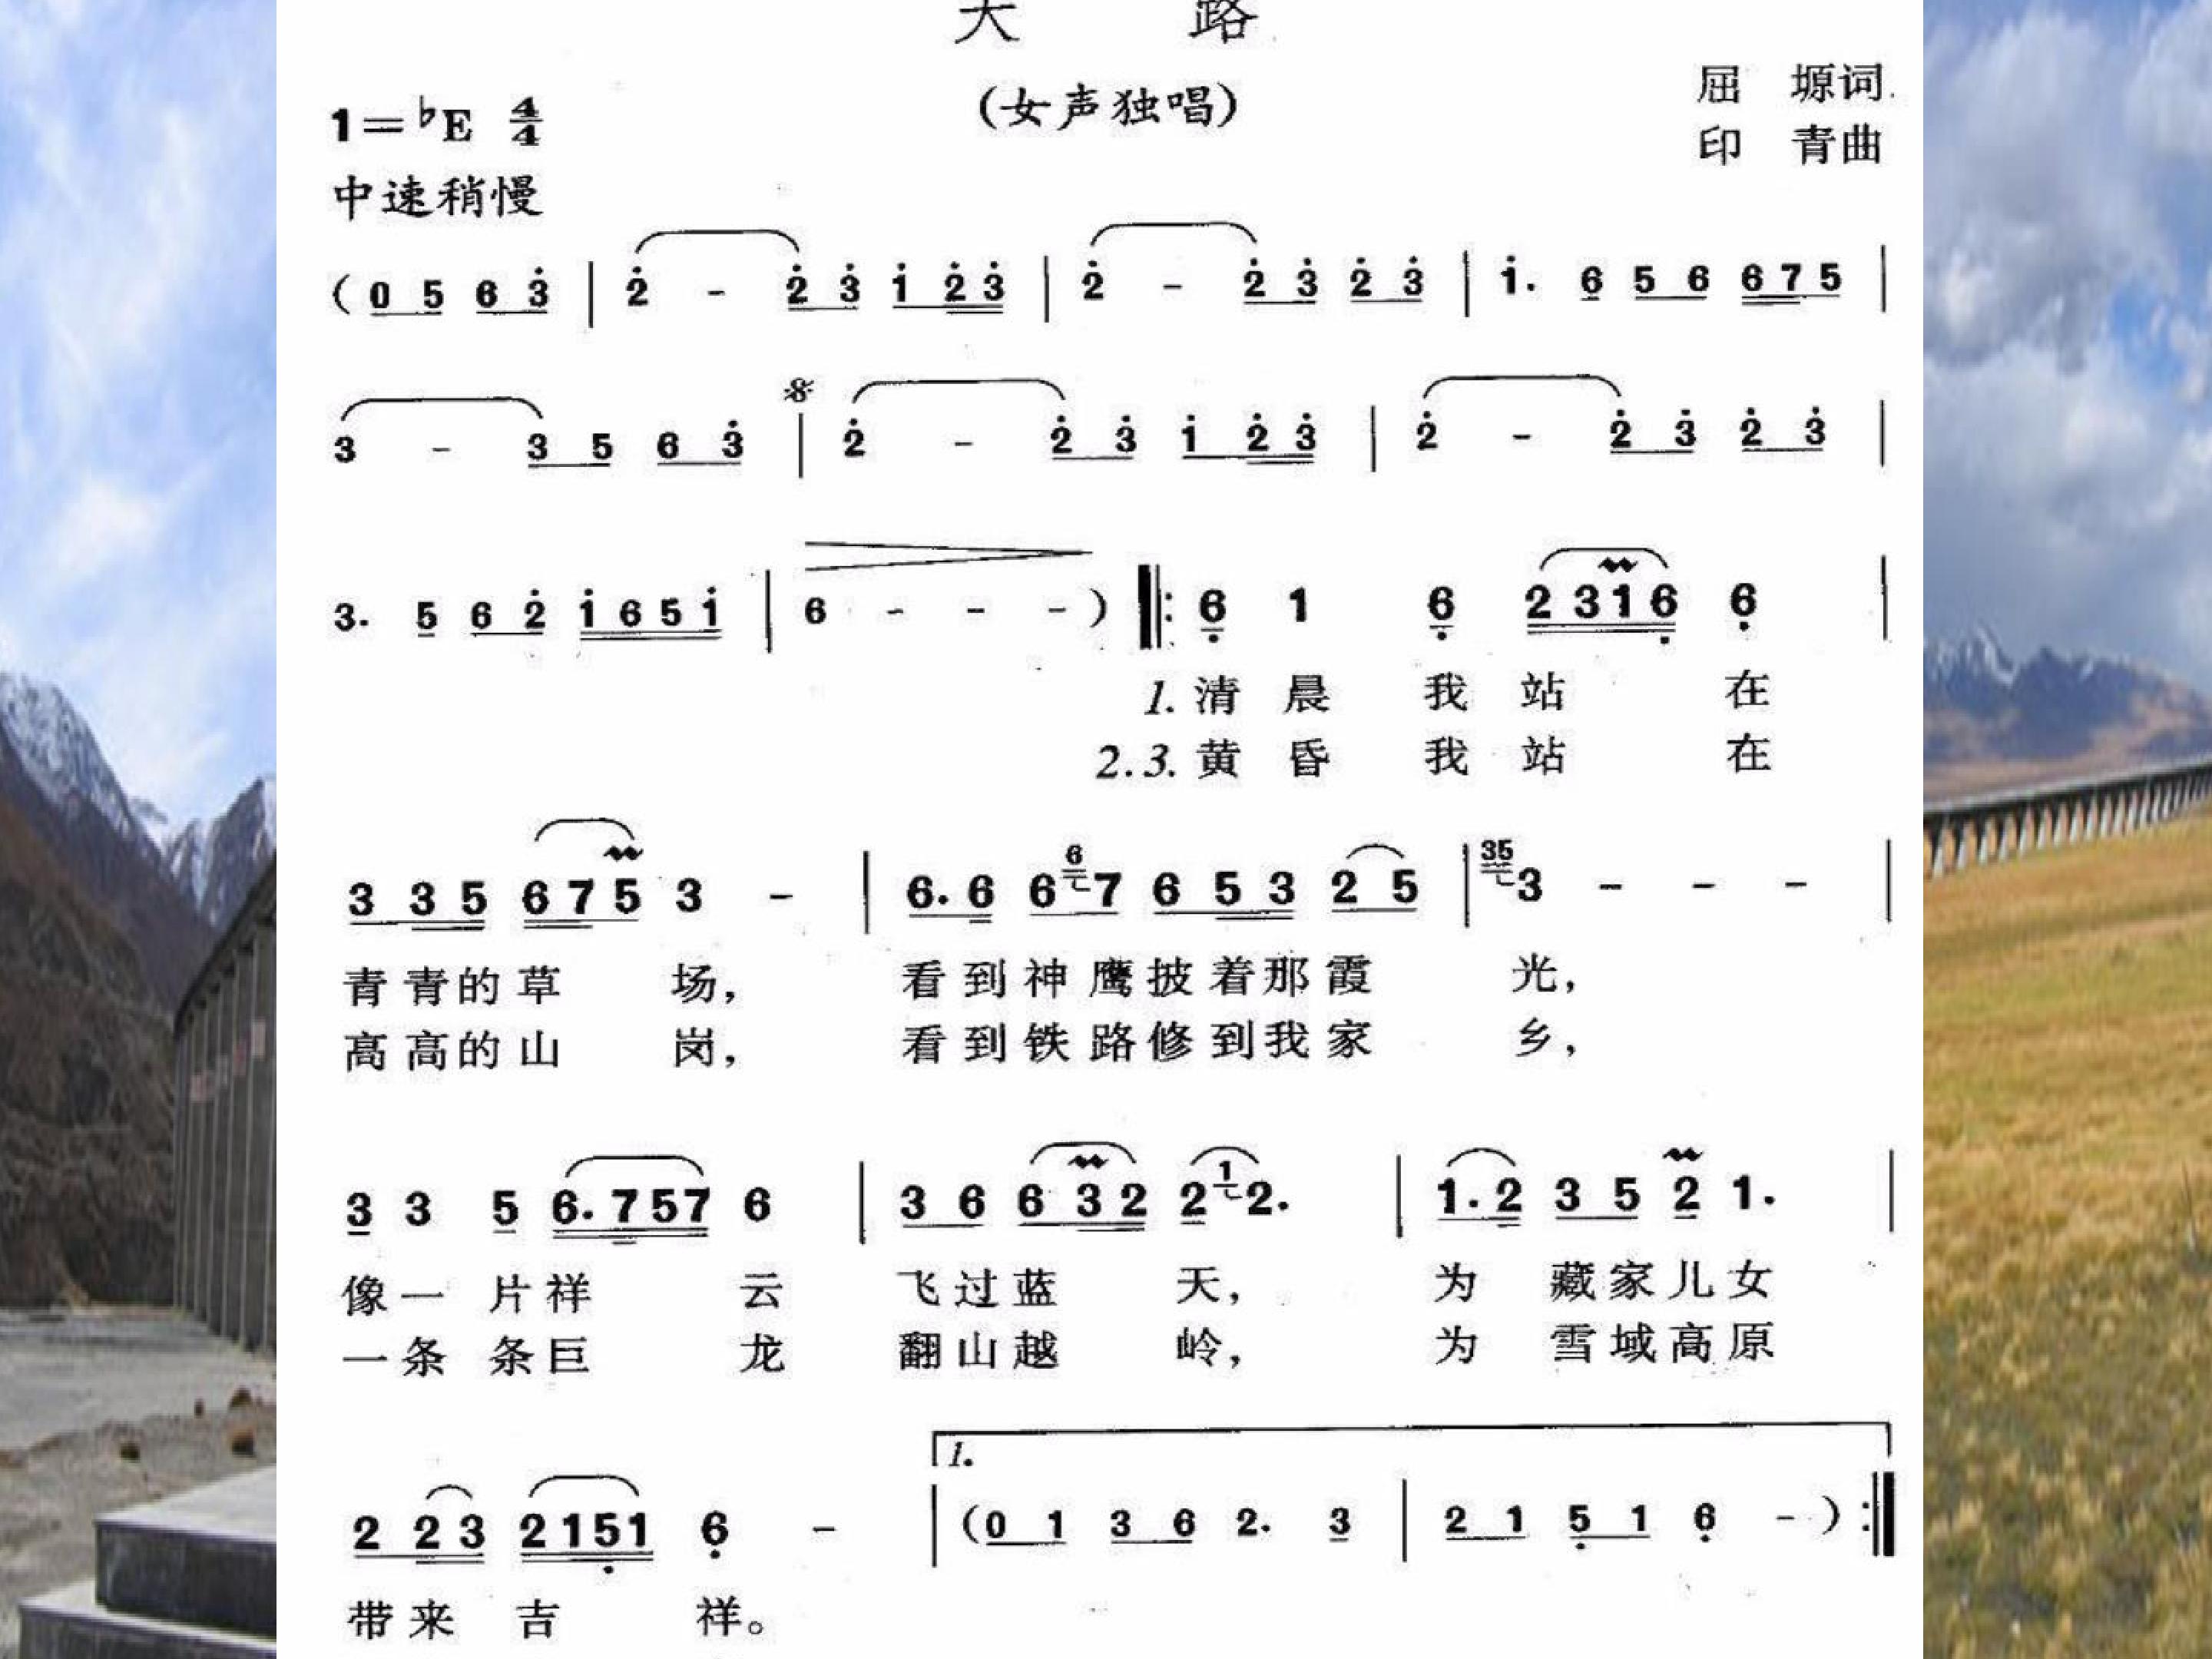 天 路
(女声独唱)
屈 塬词
印 青曲
1=♭E 4/4
中速稍慢
(0 5 6 3̇ | 2̇ - 2̇ 3̇ 1̇ 2̇ 3̇ | 2̇ - 2̇ 3̇ 2̇ 3̇ | 1̇. 6 5 6 6 7 5 |
3 - 3 5 6 3̇ | 2̇ - 2̇ 3̇ 1̇ 2̇ 3̇ | 2̇ - 2̇ 3̇ 2̇ 3̇ |
3. 5 6 2̇ 1̇ 6 5 1̇ | 6 - - - ) ‖: 6̣ 1 6̣ 2 3 1 6̣ 6̣ |
1. 清 晨 我 站 在
2.3. 黄 昏 我 站 在
3 3 5 6 7 5 3 - | 6. 6 6 6 7 6 5 3 2 5 | 35 3 - - - |
青 青 的 草 场, 看 到 神 鹰 披 着 那 霞 光,
高 高 的 山 岗, 看 到 铁 路 修 到 我 家 乡,
3 3 5 6. 7 5 7 6 | 3 6 6 3 2 2 1 2. | 1. 2 3 5 2 1. |
像 一 片 祥 云 飞 过 蓝 天, 为 藏 家 儿 女
一 条 条 巨 龙 翻 山 越 岭, 为 雪 域 高 原
1.
2 2 3 2 1 5̣ 1 6̣ - | (0 1 3 6 2. 3 | 2 1 5̣ 1 6̣ - ) :‖
带 来 吉 祥。